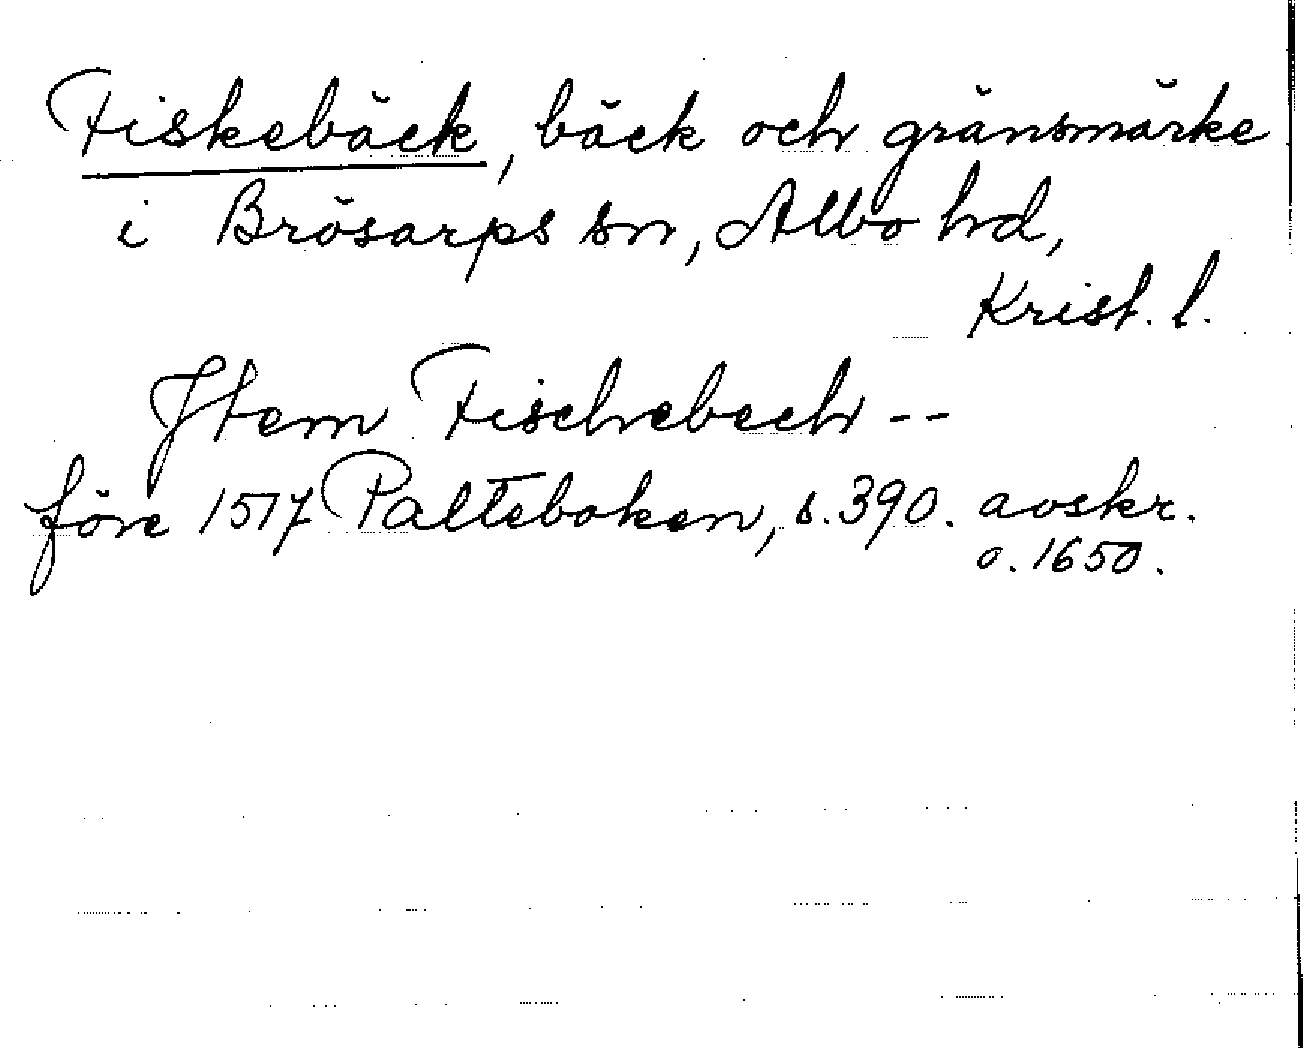 Fiskebäck, bäck och gränsmärke
i Brösarps sn, Albo hd,
Krist. l.
Jtem Fischebech --
före 1517 Palteboken, s. 390. avskr.
o. 1650.